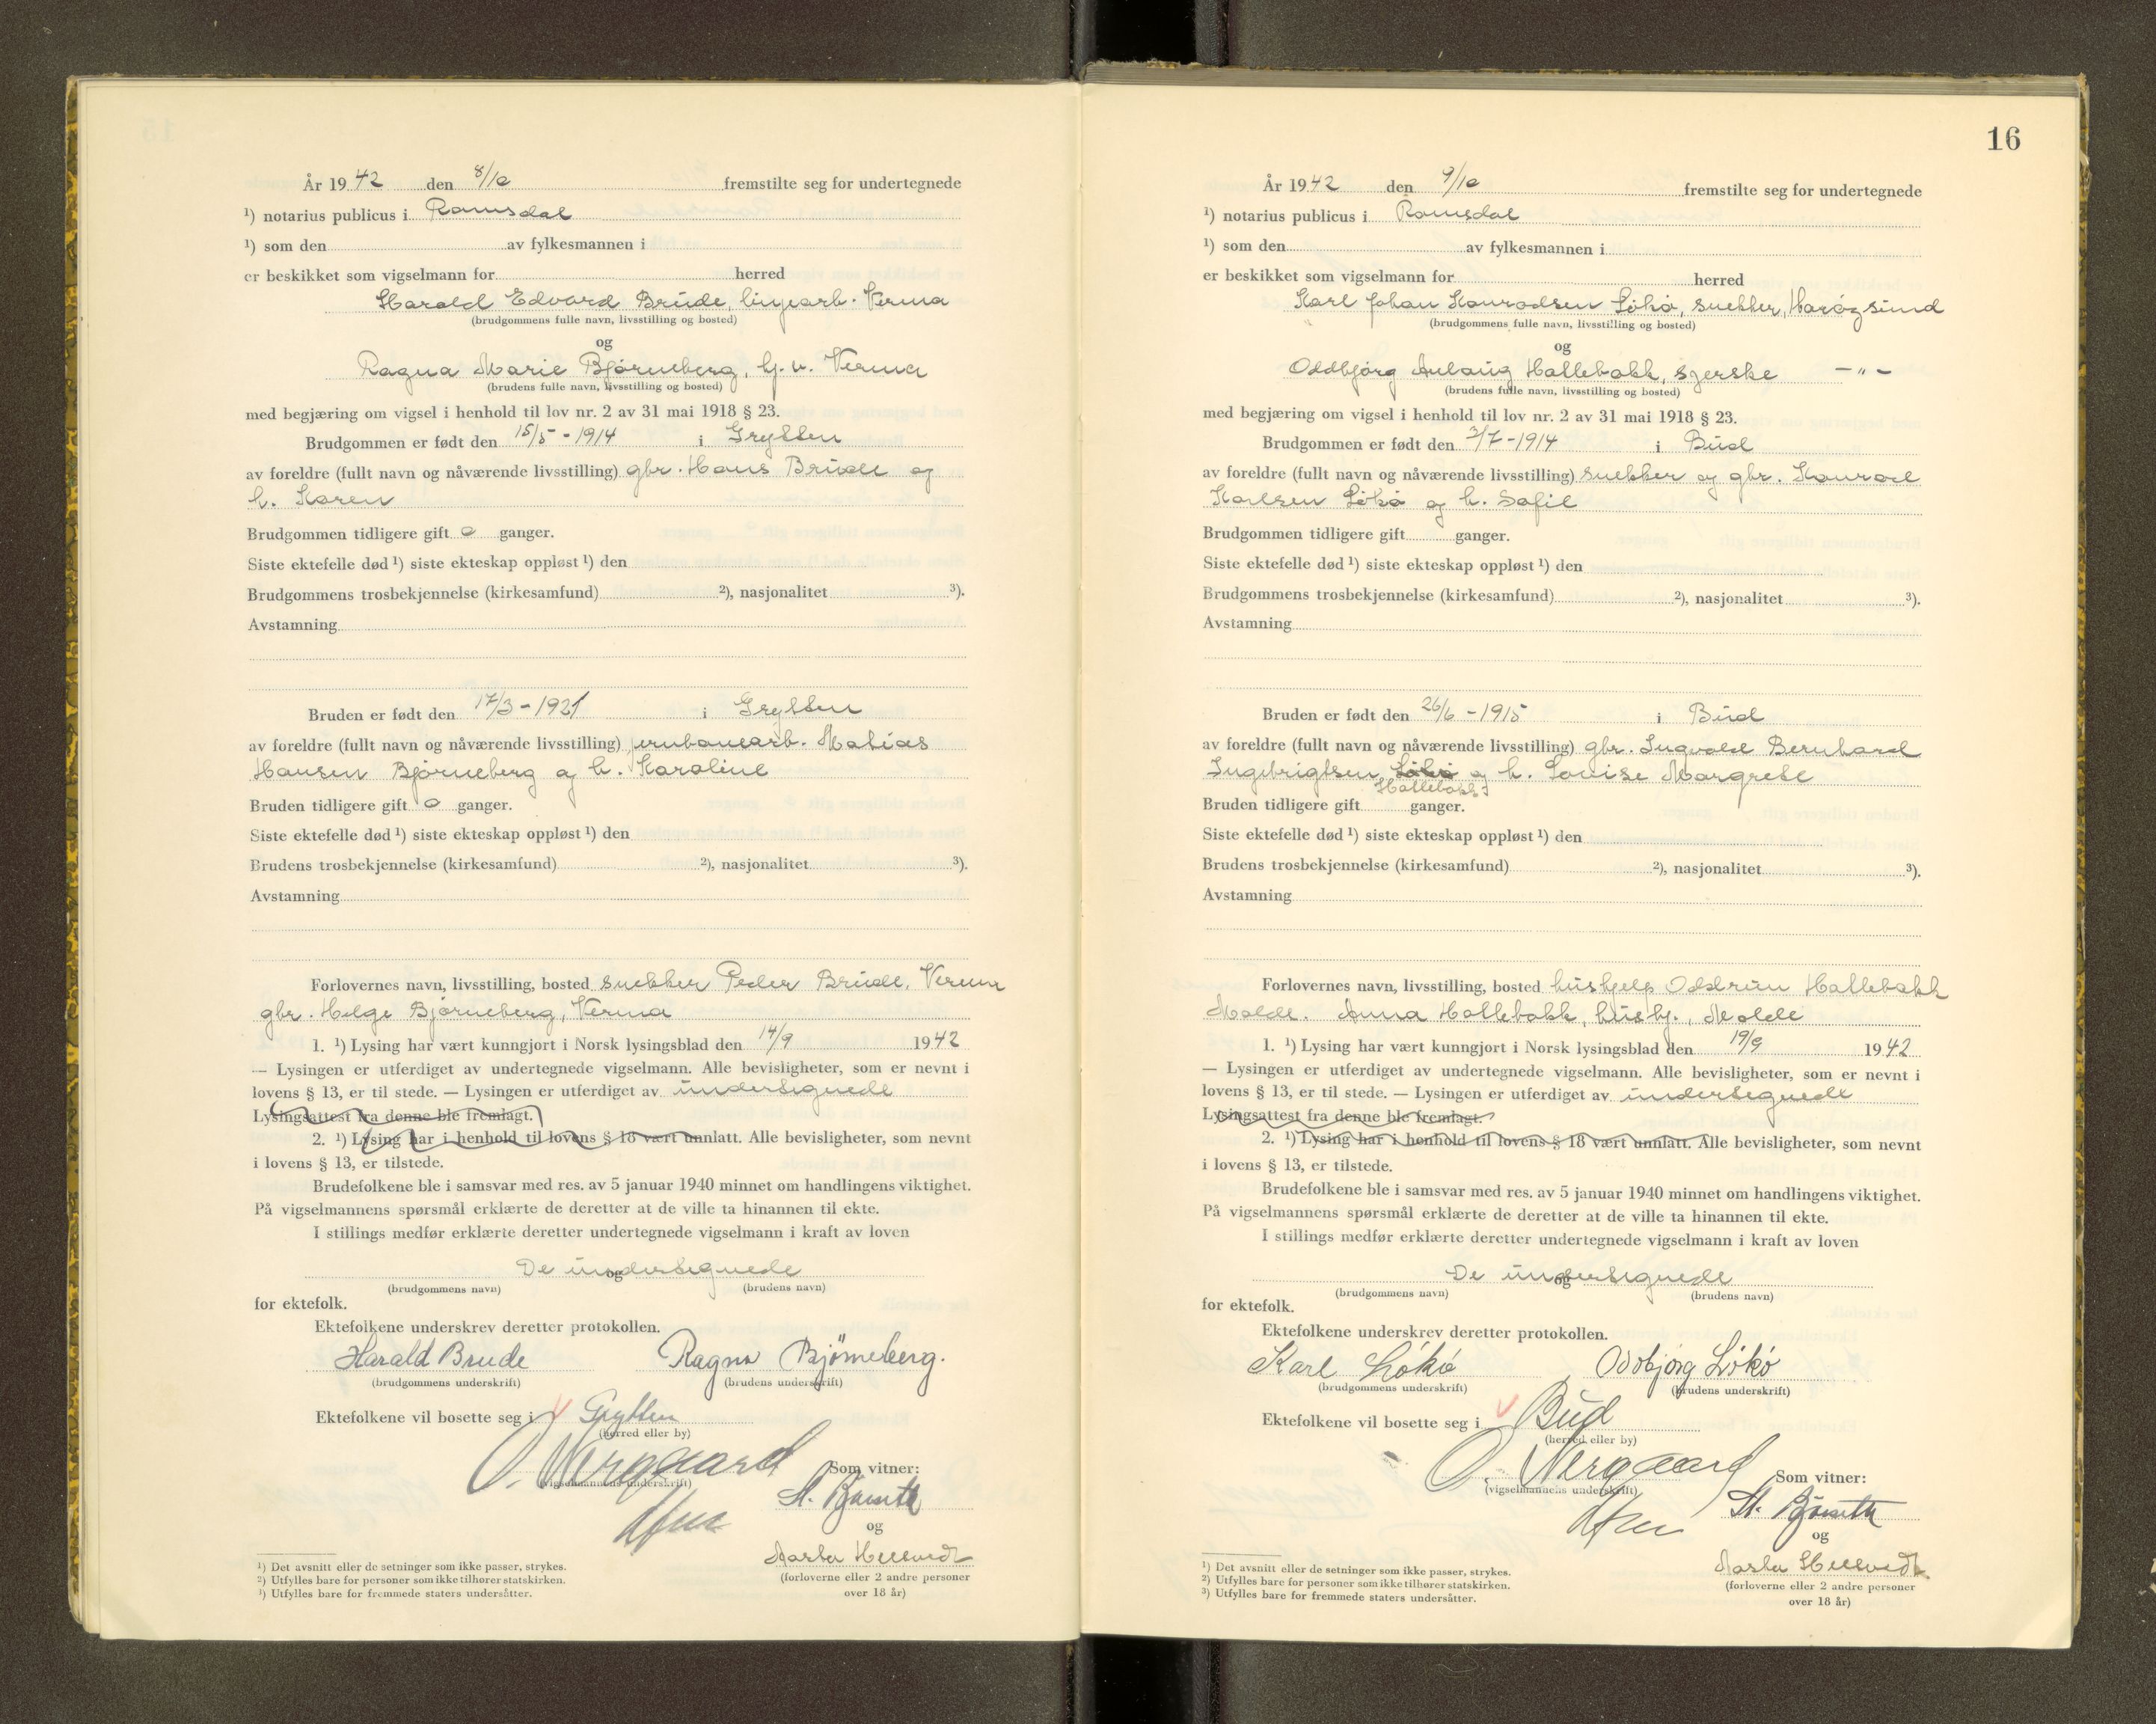 År 1942 den 8/10 fremstilte seg for undertegnede
¹) notarius publicus i Romsdal
¹) som den av fylkesmannen i
er beskikket som vigselmann for herred
Harald Edvard Brude, linjearb. Verma
(brudgommens fulle navn, livsstilling og bosted)
og
Ragna Marie Bjørneberg, hj. v. Verma
(brudens fulle navn, livsstilling og bosted)
med begjæring om vigsel i henhold til lov nr. 2 av 31 mai 1918 § 23.
Brudgommen er født den 15/5 - 1914 i Grytten
av foreldre (fullt navn og nåværende livsstilling) gbr. Hans Brude og
h. Karen
Brudgommen tidligere gift 0 ganger.
Siste ektefelle død ¹) siste ekteskap oppløst ¹) den
Brudgommens trosbekjennelse (kirkesamfund) ²), nasjonalitet ³).
Avstamning
Bruden er født den 17/3 - 1921 i Grytten
av foreldre (fullt navn og nåværende livsstilling) jernbanearb. Matias
Hansen Bjørneberg og h. Karoline
Bruden tidligere gift 0 ganger.
Siste ektefelle død ¹) siste ekteskap oppløst ¹) den
Brudens trosbekjennelse (kirkesamfund) ²), nasjonalitet ³).
Avstamning
Forlovernes navn, livsstilling, bosted snekker Peder Brude, Verma
gbr. Helge Bjørneberg, Verma
1. ¹) Lysing har vært kunngjort i Norsk lysingsblad den 14/9 1942
— Lysingen er utferdiget av undertegnede vigselmann. Alle bevisligheter, som er nevnt i
lovens § 13, er til stede. — Lysingen er utferdiget av undertegnede
Lysingsattest fra denne ble fremlagt.
2. ¹) Lysing har i henhold til lovens § 18 vært unnlatt. Alle bevisligheter, som nevnt
i lovens § 13, er tilstede.
Brudefolkene ble i samsvar med res. av 5 januar 1940 minnet om handlingens viktighet.
På vigselmannens spørsmål erklærte de deretter at de ville ta hinannen til ekte.
I stillings medfør erklærte deretter undertegnede vigselmann i kraft av loven
De undertegnede
og
(brudgommens navn) (brudens navn)
for ektefolk.
Ektefolkene underskrev deretter protokollen.
Harald Brude Ragna Bjørneberg.
(brudgommens underskrift) (brudens underskrift)
Ektefolkene vil bosette seg i Grytten
(herred eller by)
O. Nergaard
(vigselmannens underskrift)
Som vitner:
og
(forloverne eller 2 andre personer
over 18 år)
¹) Det avsnitt eller de setninger som ikke passer, strykes.
²) Utfylles bare for personer som ikke tilhører statskirken.
³) Utfylles bare for fremmede staters undersåtter.
16
År 1942 den 9/10 fremstilte seg for undertegnede
¹) notarius publicus i Romsdal
¹) som den av fylkesmannen i
er beskikket som vigselmann for herred
Karl Johan Konradsen Løkø, snekker, Harøysund
(brudgommens fulle navn, livsstilling og bosted)
og
Oddbjørg Aulaug Hallebakk, syerske -"-
(brudens fulle navn, livsstilling og bosted)
med begjæring om vigsel i henhold til lov nr. 2 av 31 mai 1918 § 23.
Brudgommen er født den 3/7 - 1914 i Bud
av foreldre (fullt navn og nåværende livsstilling) snekker og gbr. Konrad
Karlsen Løkø og h. Sofie
Brudgommen tidligere gift ganger.
Siste ektefelle død ¹) siste ekteskap oppløst ¹) den
Brudgommens trosbekjennelse (kirkesamfund) ²), nasjonalitet ³).
Avstamning
Bruden er født den 26/6 - 1915 i Bud
av foreldre (fullt navn og nåværende livsstilling) gbr. Ingvald Bernhard
Ingebrigtsen Løkø og h. Lovise Margrete
Hallebakk
Bruden tidligere gift ganger.
Siste ektefelle død ¹) siste ekteskap oppløst ¹) den
Brudens trosbekjennelse (kirkesamfund) ²), nasjonalitet ³).
Avstamning
Forlovernes navn, livsstilling, bosted hushjelp Oddrun Hallebakk
Molde. Anna Hallebakk, hushj., Molde
1. ¹) Lysing har vært kunngjort i Norsk lysingsblad den 19/9 1942
— Lysingen er utferdiget av undertegnede vigselmann. Alle bevisligheter, som er nevnt i
lovens § 13, er til stede. — Lysingen er utferdiget av undertegnede
Lysingsattest fra denne ble fremlagt.
2. ¹) Lysing har i henhold til lovens § 18 vært unnlatt. Alle bevisligheter, som nevnt
i lovens § 13, er tilstede.
Brudefolkene ble i samsvar med res. av 5 januar 1940 minnet om handlingens viktighet.
På vigselmannens spørsmål erklærte de deretter at de ville ta hinannen til ekte.
I stillings medfør erklærte deretter undertegnede vigselmann i kraft av loven
De undertegnede
og
(brudgommens navn) (brudens navn)
for ektefolk.
Ektefolkene underskrev deretter protokollen.
Karl Løkø Oddbjørg Løkø
(brudgommens underskrift) (brudens underskrift)
Ektefolkene vil bosette seg i Bud
(herred eller by)
O. Nergaard
(vigselmannens underskrift)
Som vitner:
og
(forloverne eller 2 andre personer
over 18 år)
¹) Det avsnitt eller de setninger som ikke passer, strykes.
²) Utfylles bare for personer som ikke tilhører statskirken.
³) Utfylles bare for fremmede staters undersåtter.